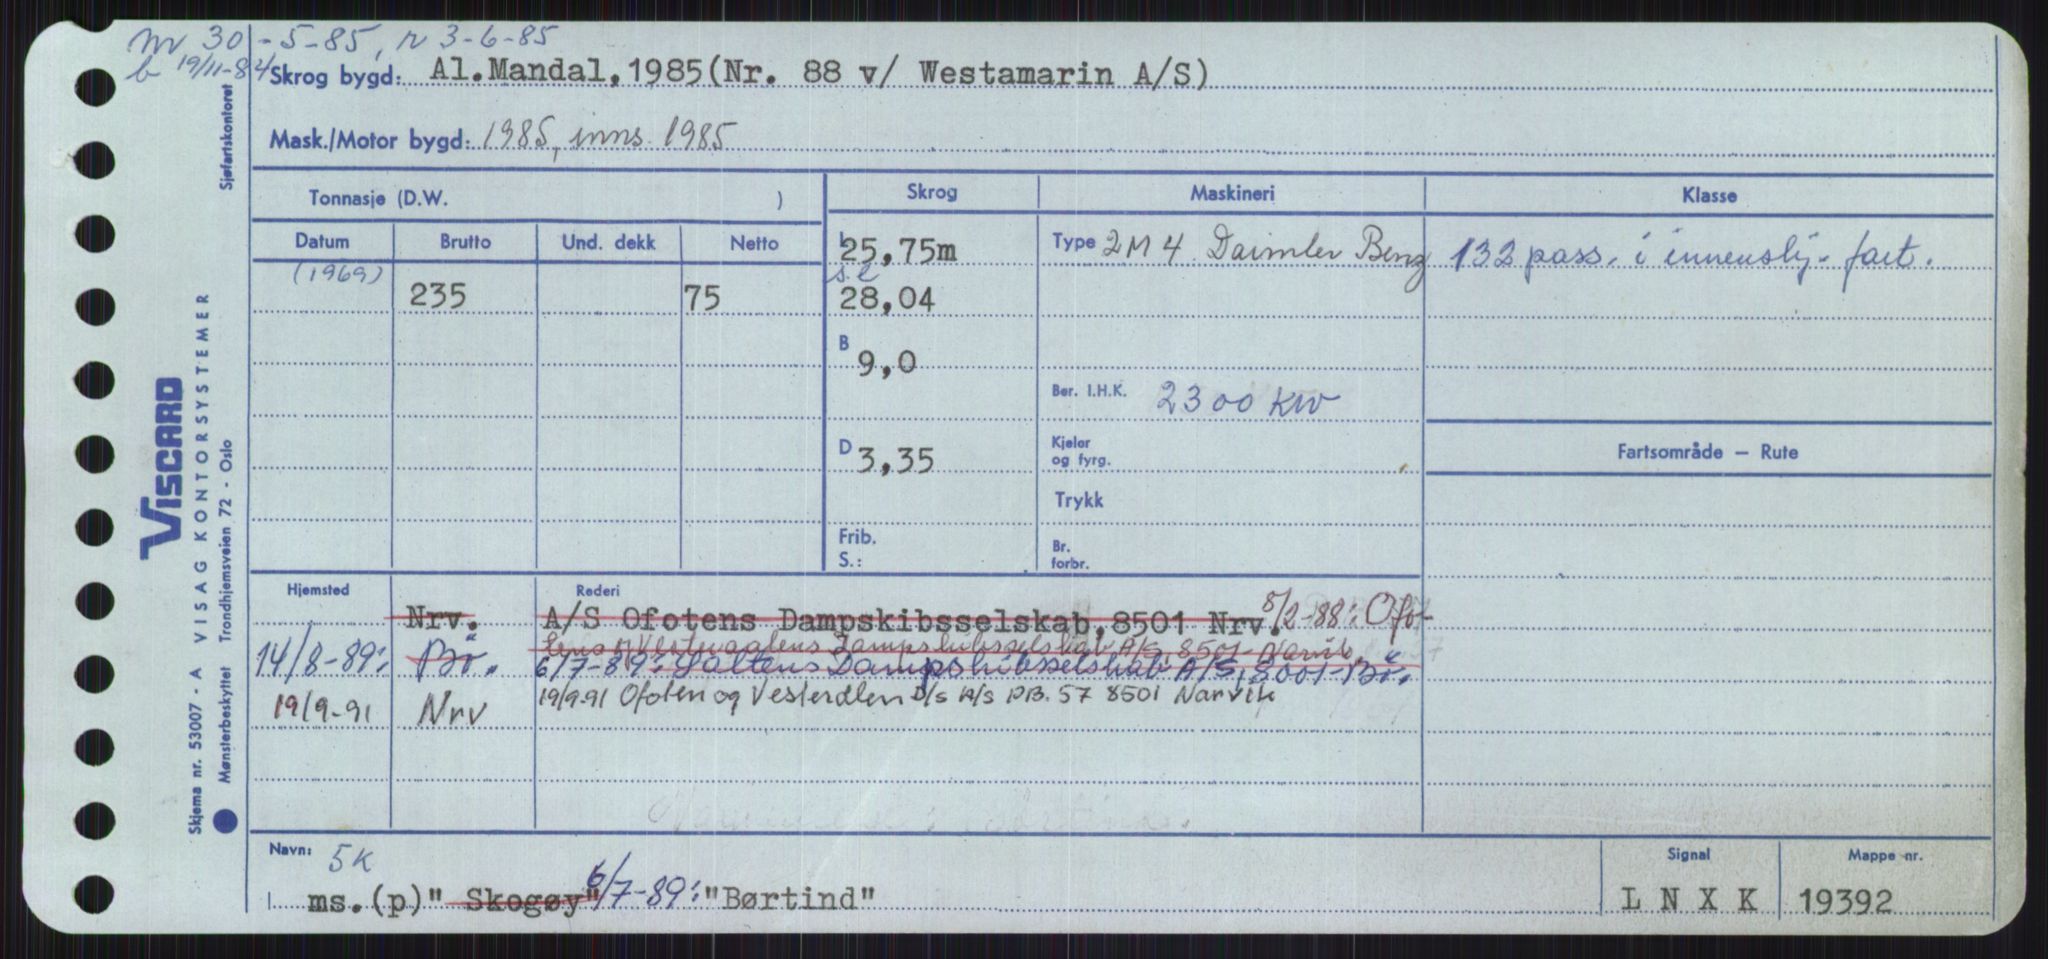 m 30-5-85, r 3-6-85
b 19/11-84
Skrog bygd: Al.Mandal,1985(Nr. 88 v/ Westamarin A/S)
Mask./Motor bygd: 1985, inns. 1985
Sjøfartskontoret
Tonnasje (D.W. )
Skrog
Maskineri
Klasse
Datum
Brutto
Und. dekk
Netto
L
25,75m
Type 2M4 Daimler Benz
132 pass. i innenskj. fart.
(1969)
235
75
s.l
28,04
B
9,0
Ber. I.H.K. 2300 KW
D
3,35
Kjeler
og fyrg.
Fartsområde — Rute
Trykk
Frib.
S.:
Br.
forbr.
Hjemsted
Rederi
Nrv.
A/S Ofotens Dampskibsselskab,8501 Nrv. 8/2-88: Ofo-
tens & Vesteraalens Dampskibsselskab A/S 8501 Narvik
14/8-89: Bø.
6/7-89: Saltens Dampskibsselskab A/S, 8001-Bø.
19/9-91 Nrv
19/9-91 Ofoten og Vesterålen D/S A/S P.B. 57 8501 Narvik
Navn: SK
ms.(p)" Skogøy" 6/7-89: "Børtind"
Signal
L N X K
Mappe nr.
19392
VISCARD
VISAG KONTORSYSTEMER
Skjema nr. 53007 - A
Mønsterbeskyttet Trondhjemsveien 72 - Oslo